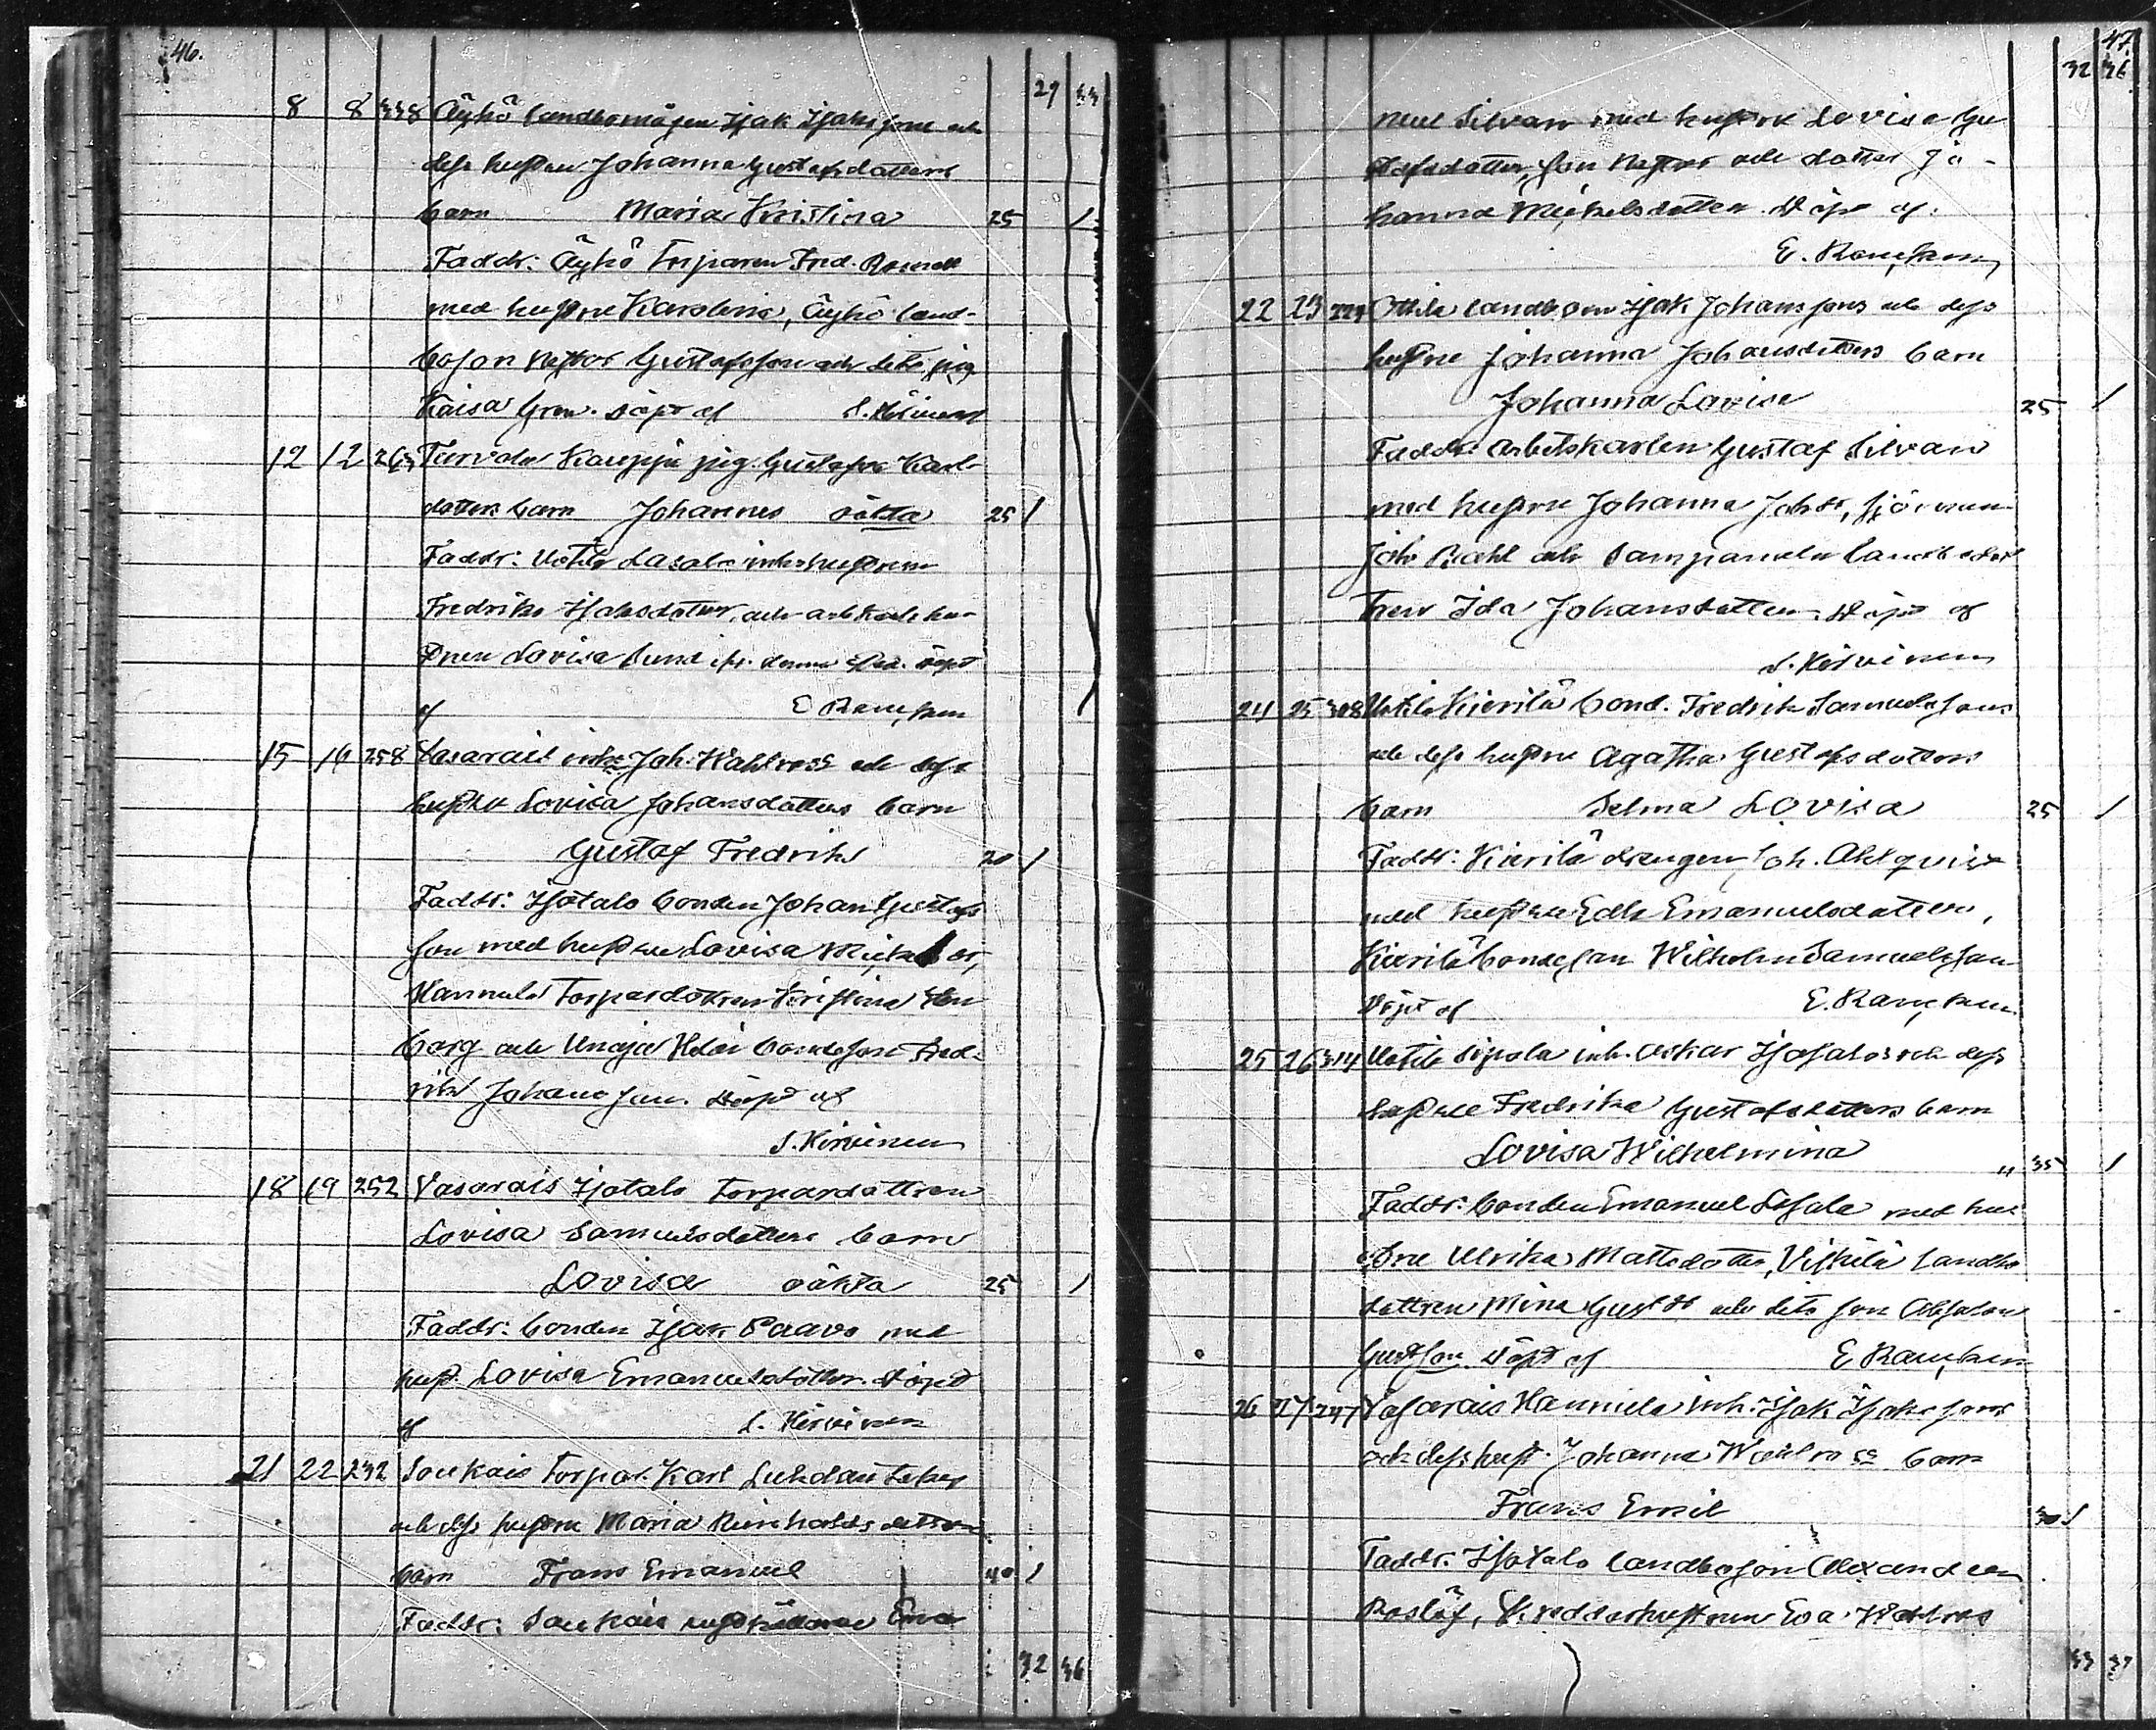 46.
29 33
8 8 338 Äyhö landbomågen Isak Isaksons och
dess hustru Johanna Gustafsdotters
barn Maria Kristina 25 /
Faddr: Äyhö Torparen Fred.
med hustru Karolina, Äyhö land-
boson Nestor Gustafsson och dito pig.
Kaisa Grön. döpt af S. Hirvinen
12 12 263 Turvola Kauppi pig. Gustafva Karls
dotters barn Johannes oäkta 25 /
Faddr: Uotila Lasala inhs hustrun
Fredrika Isaksdotter, och arbetsk. hu-
strun Lovisa Sund ifr. denna döpt
af E Rancken
15 16 258 Vasarais inhs Joh. Wahlross och dess
hustru Lovisa Johansdotters barn
Gustaf Fredrik 20 /
Faddr: Isotalo bonden Johan Gustafs
son med hustru Lovisa Mickelsdr,
Hannula Torpardottren Kristina
berg och Unaja Heloi bondeson Fred-
rik Johansson. döpt af
S. Hirvinen
18 19 252 Vasarais Isotalo Torpardottren
Lovisa Samuelsdotters barn
Lovisa oäkta 25 /
Faddr: bonden Isak Paavo med
hust. Lovisa Emanuelsdotter. döpt
af S. Hirvinen
21 22 232 Soukais Torpar. Karl
och dess hustru Maria Reinholdsdotters
barn Frans Emanuel 40 /
Faddr: Soukais
32 36
47.
32 36
nuel Silvan med hustru Lovisa Gu
stafsdotter, son Nestor och dotter Jo-
hanna Mickelsdotter. Döpt af.
E. Rancken
22 23 229 Ottila landbon Isak Johanssons och dess
hustru Johanna Johansdotters barn
Johanna Lovisa 25 /
Faddr: arbetskarlen Gustaf Silvan
med hustru Johanna Johdr, sjöman
Joh. och Sampanala landbodot
tren Ida Johansdotter. Döpt af
S. Hirvinen
24 25 308 Uotila Kierilä bond. Fredrik Samuelssons
och dess hustru Agatha Gustafsdotters
barn Selma Lovisa 25 /
Faddr: Kierilä drengen Joh. Ahlqvist
med hustru Edla Emanuelsdotter,
Kierilä bondeson Wilhelm Samuelsson
Döpt af E. Rancken
25 26 314 Uotila Sipola inh. Oskar Isosalos och dess
hustru Fredrika Gustafsdotters barn
Lovisa Wilhelmina " 35 /
Faddr: bonden Emanuel med hus
tru Ulrika Mattsdotter, landbo
dottren Mina Gustdr och dito son Absalon
Gustson. Döpt af E Rancken
26 27 247 Vasarais Hannula inh. Isak Isakssons
och dess hust. Johanna Wahlross barn
Frans Emil 30 /
Faddr: Isotalo landboson Alexander
Roslöf, Skreddarhustrun Eva Wahlros
33 37